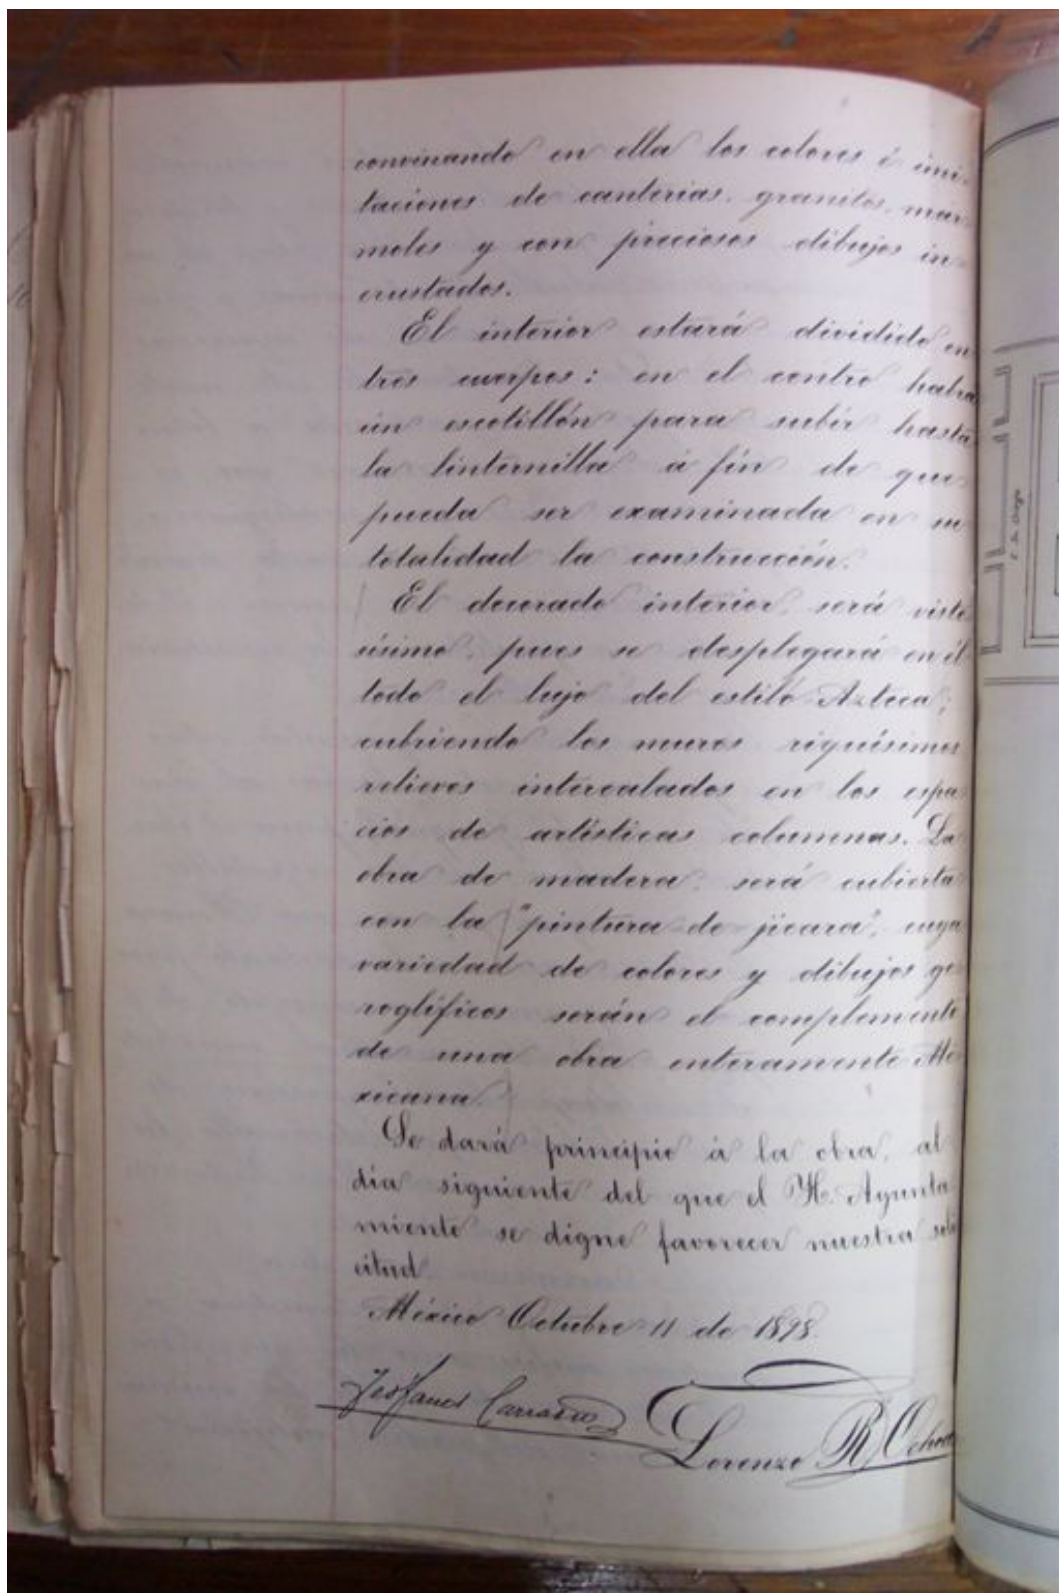 convinando en ella los colores é imi-
taciones de canterias, granitos, már-
moles y con preciosos dibujos in-
crustados.
El interior estará dividido en
tres cuerpos: en el centro habrá
un escotillón para subir hasta
la linternilla á fín de que
pueda ser examinada en su
totalidad la construcción.
El decorado interior, será visto
sísimo, pues se desplegará en él
todo el lujo del estilo Azteca;
cubriendo los muros riquísimos
relieves intercalados en los espa-
cios de artísticas columnas. La
obra de madera, será cubierta
con la "pintura de jicara", cuya
variedad de colores y dibujos ge-
roglíficos serán el complemento
de una obra enteramente Mé-
xicana.
Se dará principio á la obra, al
día siguiente del que el H. Ayunta-
miento se digne favorecer nuestra soli-
citud.
México Octubre 11 de 1898.
Teofanes Carrasco
Lorenzo R. Ochoa